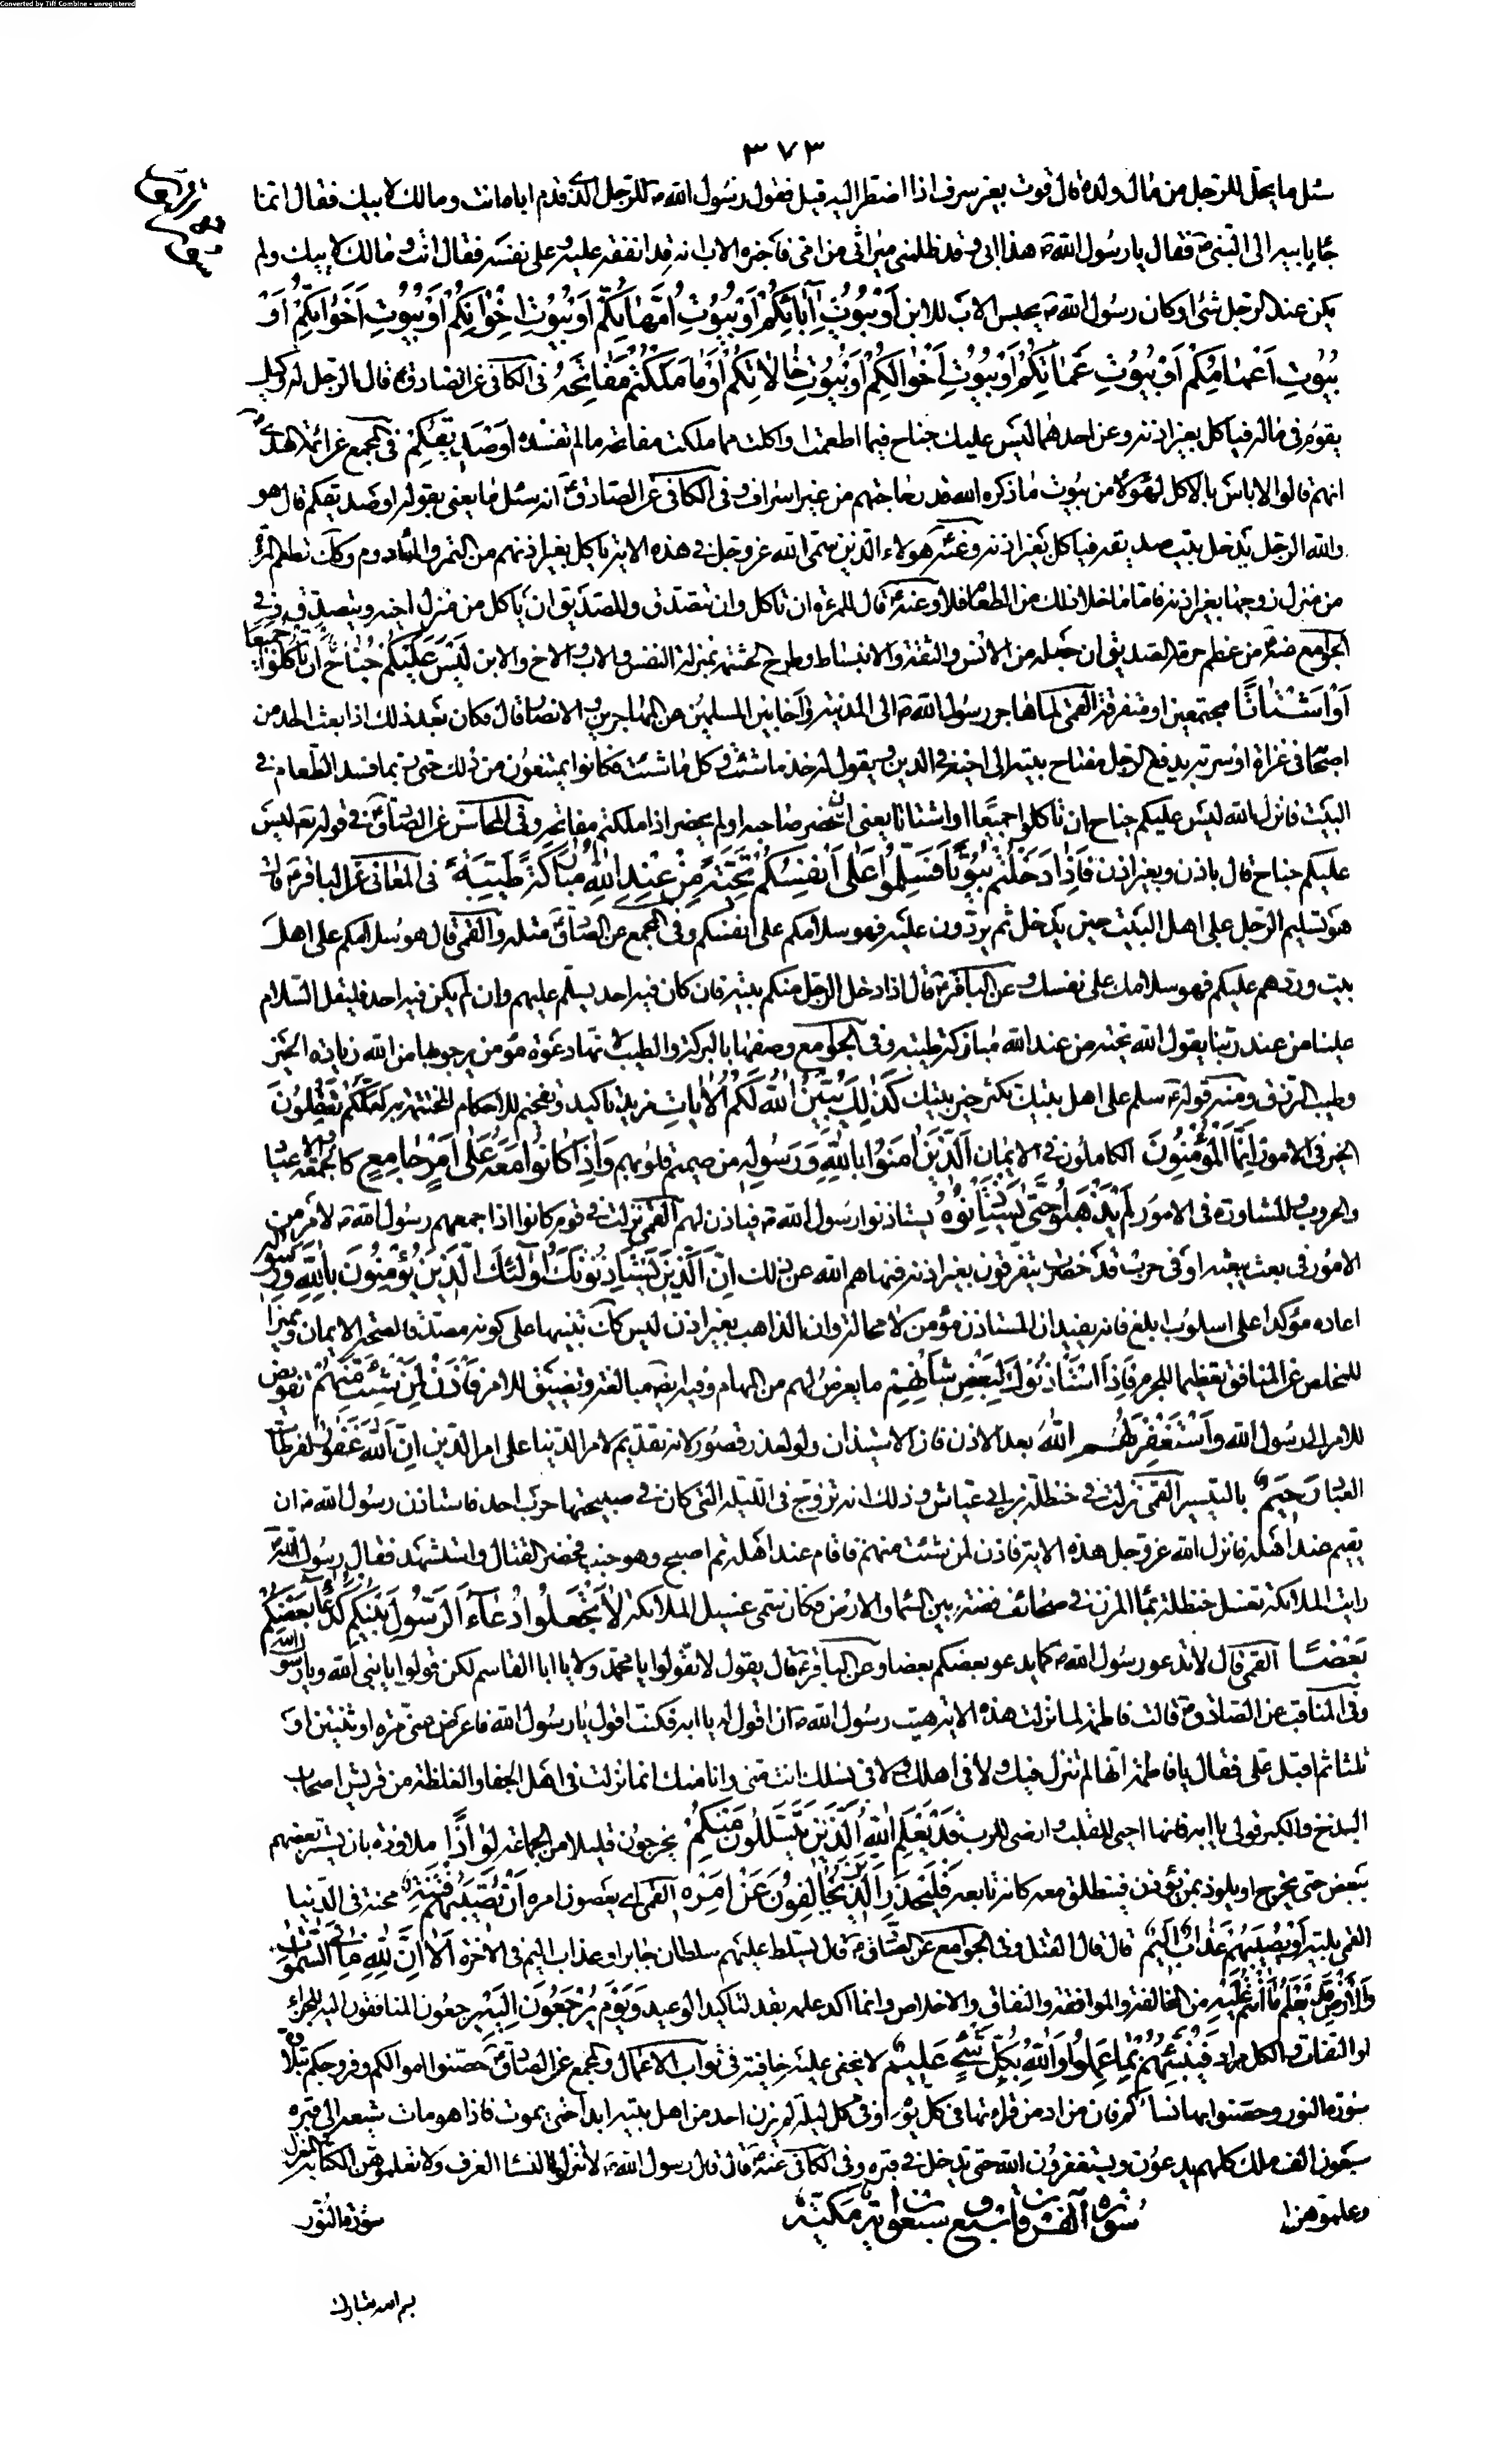 Converted by Tiff Combine - unregistered
٣٧٣
سئل ما يحل للرجل من مال ولده قال قوت بغير سرف اذا اضطر اليه قيل فقول رسول الله ص للرجل الذى قدم اباه انت ومالك لابيك فقال انما
جاء بابيه الى النبى ص فقال يا رسول الله ص هذا ابى وقد ظلمنى ميراثى من امى فاخبره الاب انه قد انفقه عليه وعلى نفسه فقال انت ومالك لابيك ولم
يكن عند الرجل شئ اوكان رسول الله ص يحبس الاب للابن أَوْ بُيُوتِ آبَائِكُمْ أَوْ بُيُوتِ أُمَّهَاتِكُمْ أَوْ بُيُوتِ إِخْوَانِكُمْ أَوْ بُيُوتِ أَخَوَاتِكُمْ أَوْ
بُيُوتِ أَعْمَامِكُمْ أَوْ بُيُوتِ عَمَّاتِكُمْ أَوْ بُيُوتِ أَخْوَالِكُمْ أَوْ بُيُوتِ خَالَاتِكُمْ أَوْ مَا مَلَكْتُمْ مَفَاتِحَهُ فى الكافى عن الصادق ع قال الرجل له وكيل
يقوم فى ماله فياكل بغير اذنه وعن احدهما ليس عليك جناح فيما اطعمت او اكلت مما ملكت مفاتحه مالم تفسده أَوْ صَدِيقِكُمْ فى المجمع عن ائمة الهدى
انهم قالوا لا باس بالاكل لهؤلاء من بيوت ما ذكره الله قدر حاجتهم من غير اسراف وفى الكافى عن الصادق ع انه سئل ما يعنى بقوله او صديقكم قال هو
والله الرجل يدخل بيت صديقه فياكل بغير اذنه وعنه ع هؤلاء الذين سمى الله عز وجل فى هذه الاية ياكل بغير اذنهم من التمر والمادوم وكذلك تطعم المرأة
من منزل زوجها بغير اذنه فاما ما خلا ذلك من الطعام فلا وعنه ع قال للمرءة ان تاكل وان تتصدق وللصديق ان ياكل من منزل اخيه ويتصدق وفى
الجوامع عنه ع من عظم حرمة الصديق ان جعله من الانس والثقة والانبساط وطرح الحشمة بمنزلة النفس والاب والاخ والابن لَيْسَ عَلَيْكُمْ جُنَاحٌ أَنْ تَأْكُلُوا جَمِيعًا
أَوْ أَشْتَاتًا مجتمعين او متفرقين القمى لما هاجر رسول الله ص الى المدينة واخا بين المسلمين من المهاجرين والانصار قال فكان بعد ذلك اذا بعث احدا من
اصحابه فى غزاة او سرية يدفع الرجل مفتاح بيته الى اخيه فى الدين ويقول له خذ ما شئت وكل ما شئت فكانوا يمتنعون من ذلك حتى ربما فسد الطعام فى
البيت فانزل الله ليس عليكم جناح ان تاكلوا جميعا او اشتاتا يعنى ان حضر صاحبه اولم يحضر اذا ملكتم مفاتحه وفى المحاسن عن الصادق ع فى قوله تع ليس
عليكم جناح قال باذن وبغير اذن فَإِذَا دَخَلْتُمْ بُيُوتًا فَسَلِّمُوا عَلَى أَنْفُسِكُمْ تَحِيَّةً مِنْ عِنْدِ اللَّهِ مُبَارَكَةً طَيِّبَةً فى المعانى عن الباقر ع قال
هو تسليم الرجل على اهل البيت حين يدخل ثم يردون عليه فهو سلامكم على انفسكم وفى المجمع عن الصادق ع مثله والقمى قال هو سلامكم على اهل
بيت وردهم عليكم فهو سلامك على نفسك وعن الباقر ع قال اذا دخل الرجل منكم بيته فان كان فيه احد يسلم عليهم وان لم يكن فيه احد فليقل السلام
علينا من عند ربنا يقول الله تحية من عند الله مباركة طيبة وفى الجوامع وصفها بالبركة والطيب لانها دعوة مؤمن يرجوبها من الله زيادة الخير
وطيب الرزق ومنه قوله ع سلم على اهل بيتك يكثر خير بيتك كَذَلِكَ يُبَيِّنُ اللَّهُ لَكُمُ الْآيَاتِ مزيد تاكيد وتفخيم للاحكام المختتمة به لَعَلَّكُمْ تَعْقِلُونَ
الخير فى الامور إِنَّمَا الْمُؤْمِنُونَ الكاملون فى الايمان الَّذِينَ آمَنُوا بِاللَّهِ وَرَسُولِهِ من صميم قلوبهم وَإِذَا كَانُوا مَعَهُ عَلَى أَمْرٍ جَامِعٍ كالجمعة والاعياد
والحروب والمشاورة فى الامور لَمْ يَذْهَبُوا حَتَّى يَسْتَأْذِنُوهُ يستاذنوا رسول الله ص فياذن لهم القمى نزلت فى قوم كانوا اذا جمعهم رسول الله ص لامر من
الامور فى بعث يبعثه او فى حرب قد حضرت يتفرقون بغير اذنه فنهاهم الله عن ذلك إِنَّ الَّذِينَ يَسْتَأْذِنُونَكَ أُولَئِكَ الَّذِينَ يُؤْمِنُونَ بِاللَّهِ وَرَسُولِهِ
اعاده مؤكدا على اسلوب ابلغ فانه يفيد ان المستاذن مؤمن لا محالة وان الذاهب بغير اذن ليس كك تنبيها على كونه مصداقا لصحة الايمان ومميزا
للمخلص عن المنافق وتعظيما للجرم فَإِذَا اسْتَأْذَنُوكَ لِبَعْضِ شَأْنِهِمْ ما يعرض لهم من المهام وفيه ايضا مبالغة وتضييق للامر فَأْذَنْ لِمَنْ شِئْتَ مِنْهُمْ تفويض
للامر الى رسول الله وَاسْتَغْفِرْ لَهُمُ اللَّهَ بعد الاذن فان الاستيذان ولو لعذر قصور لانه تقديم لامر الدنيا على امر الدين إِنَّ اللَّهَ غَفُورٌ لفرطات
العباد رَحِيمٌ بالتيسير القمى نزلت فى حنظلة بن ابى عياش وذلك انه تزوج فى الليلة التى كان فى صبيحتها حرب احد فاستاذن رسول الله ص ان
يقيم عند اهله فانزل الله عز وجل هذه الاية فاذن لمن شئت منهم فاقام عند اهله ثم اصبح وهو جنب فحضر القتال واستشهد فقال رسول الله ص
رايت الملائكة تغسل حنظلة بماء المزن فى صحائف فضة بين السماء والارض فكان سمى غسيل الملائكة لَا تَجْعَلُوا دُعَاءَ الرَّسُولِ بَيْنَكُمْ كَدُعَاءِ بَعْضِكُمْ
بَعْضًا القمى قال لا تدعو رسول الله ص كما يدعو بعضكم بعضا وعن الباقر ع قال يقول لا تقولوا يا محمد ولا يا ابا القاسم لكن قولوا يا نبى الله ويا رسول الله
وفى المناقب عن الصادق ع قالت فاطمة لما نزلت هذه الاية هبت رسول الله ص ان اقول له يا ابه فكنت اقول يا رسول الله فاعرض عنى مرة او ثنتين او
ثلثا ثم اقبل على فقال يا فاطمة انها لم تنزل فيك ولا فى اهلك ولا فى نسلك انت منى وانا منك انما نزلت فى اهل الجفاء والغلظة من قريش اصحاب
البذخ والكبر قولى يا ابه فانها احيى للقلب وارضى للرب قَدْ يَعْلَمُ اللَّهُ الَّذِينَ يَتَسَلَّلُونَ مِنْكُمْ يخرجون قليلا من الجماعة لِوَاذًا ملاوذة بان يستتر بعضهم
ببعض حتى يخرج او يلوذ بمن يؤذن فينطلق معه كانه تابعه فَلْيَحْذَرِ الَّذِينَ يُخَالِفُونَ عَنْ أَمْرِهِ القمى اى يعصون امره أَنْ تُصِيبَهُمْ فِتْنَةٌ محنة فى الدنيا
القمى بلية أَوْ يُصِيبَهُمْ عَذَابٌ أَلِيمٌ قال قال القتل وفى الجوامع عن الصادق ع قال يسلط عليهم سلطان جابر او عذاب اليم فى الاخرة أَلَا إِنَّ لِلَّهِ مَا فِي السَّمَوَاتِ
وَالْأَرْضِ قَدْ يَعْلَمُ مَا أَنْتُمْ عَلَيْهِ من المخالفة والموافقة والنفاق والاخلاص وانما اكد علمه بقد لتاكيد الوعيد وَيَوْمَ يُرْجَعُونَ إِلَيْهِ يرجعون المنافقون اليه للجزاء
او التفات والكل مراد فَيُنَبِّئُهُمْ بِمَا عَمِلُوا وَاللَّهُ بِكُلِّ شَيْءٍ عَلِيمٌ لا يخفى عليه خافية فى ثواب الاعمال والمجمع عن الصادق ع حصنوا اموالكم وفروجكم بتلاوة
سورة النور وحصنوا بها نساءكم فان من ادمن قراءتها فى كل يوم او فى كل ليلة لم يزن احد من اهل بيته ابدا حتى يموت فاذا هو مات شيعه الى قبره
سبعون الف ملك كلهم يدعون ويستغفرون الله حتى يدخل فى قبره وفى الكافى عنه ع قال قال رسول الله ص لا تنزلوا النساء الغرف ولا تعلموهن الكتابة
وعلموهن المغزل
سورة النور
سورة الفرقان سبع وسبعون آية مكية